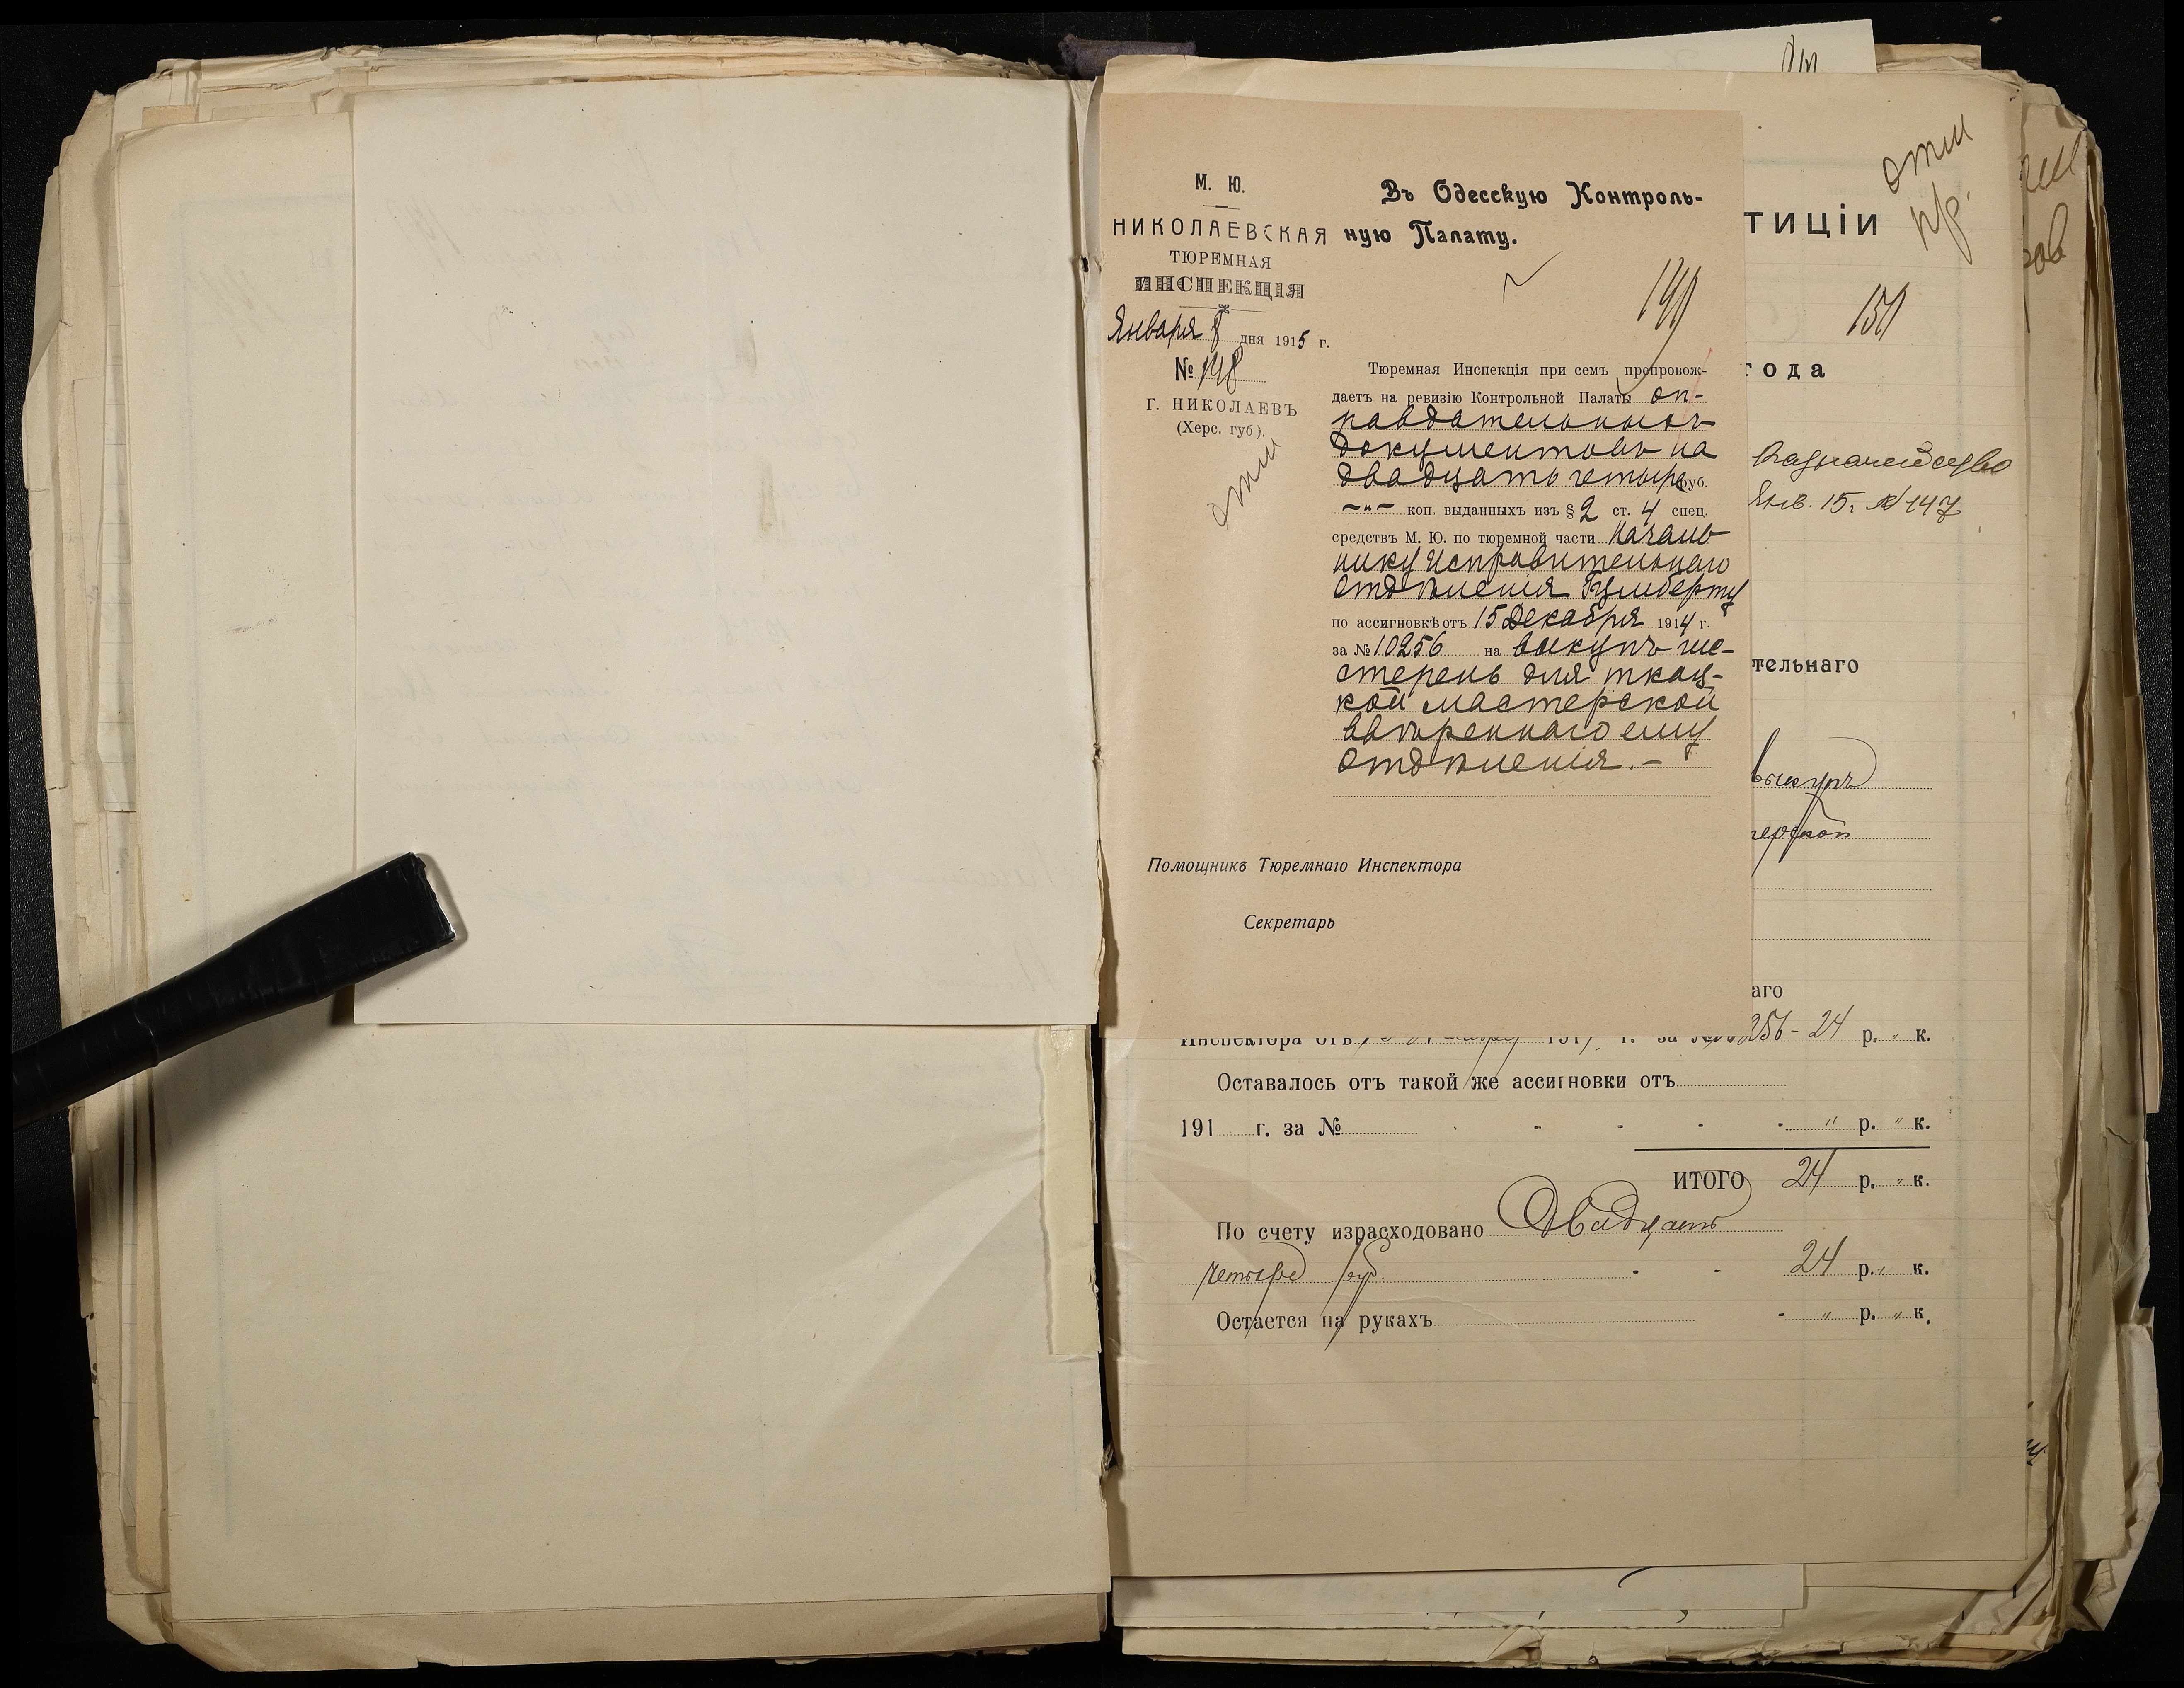 М. Ю.
НИКОЛАЕВСКАЯ
ТЮРЕМНАЯ
ИНСПЕКЦІЯ
Января 8 дня 1915 г.
№ 148
Г. НИКОЛАЕВЪ
(Херс. губ).
Въ Одесскую Контроль-
ную Палату.
Тюремная Инспекція при семъ препровож-
даетъ на ревизію Контрольной Палаты оп-
равдательныхъ
документовъ на
двадцать четыре руб.
—"— коп. выданныхъ изъ § 2 ст. 4 спец.
средствъ М. Ю. по тюремной части Началь
нику Исправительнаго
отдѣленія Гумберту
по ассигновкѣ отъ 15 Декабря 1914 г.
за № 10256 на выкупъ ше-
стерень для ткац-
кой мастерской
ввѣреннаго ему
отдѣленія.—
Помощникъ Тюремнаго Инспектора
Секретарь
тиціи
150
года
Казначейство
Янв. 15 г. № 147
тельнаго
выкупъ
аго
Инспектора отъ 256 - 24 р. " к.
Оставалось отъ такой же ассигновки отъ
191 г. за № - - - - " р. " к.
ИТОГО 24 р. " к.
По счету израсходовано Двадцать
четыре руб. - - 24 р. " к.
Остается на рукахъ - " р. " к.